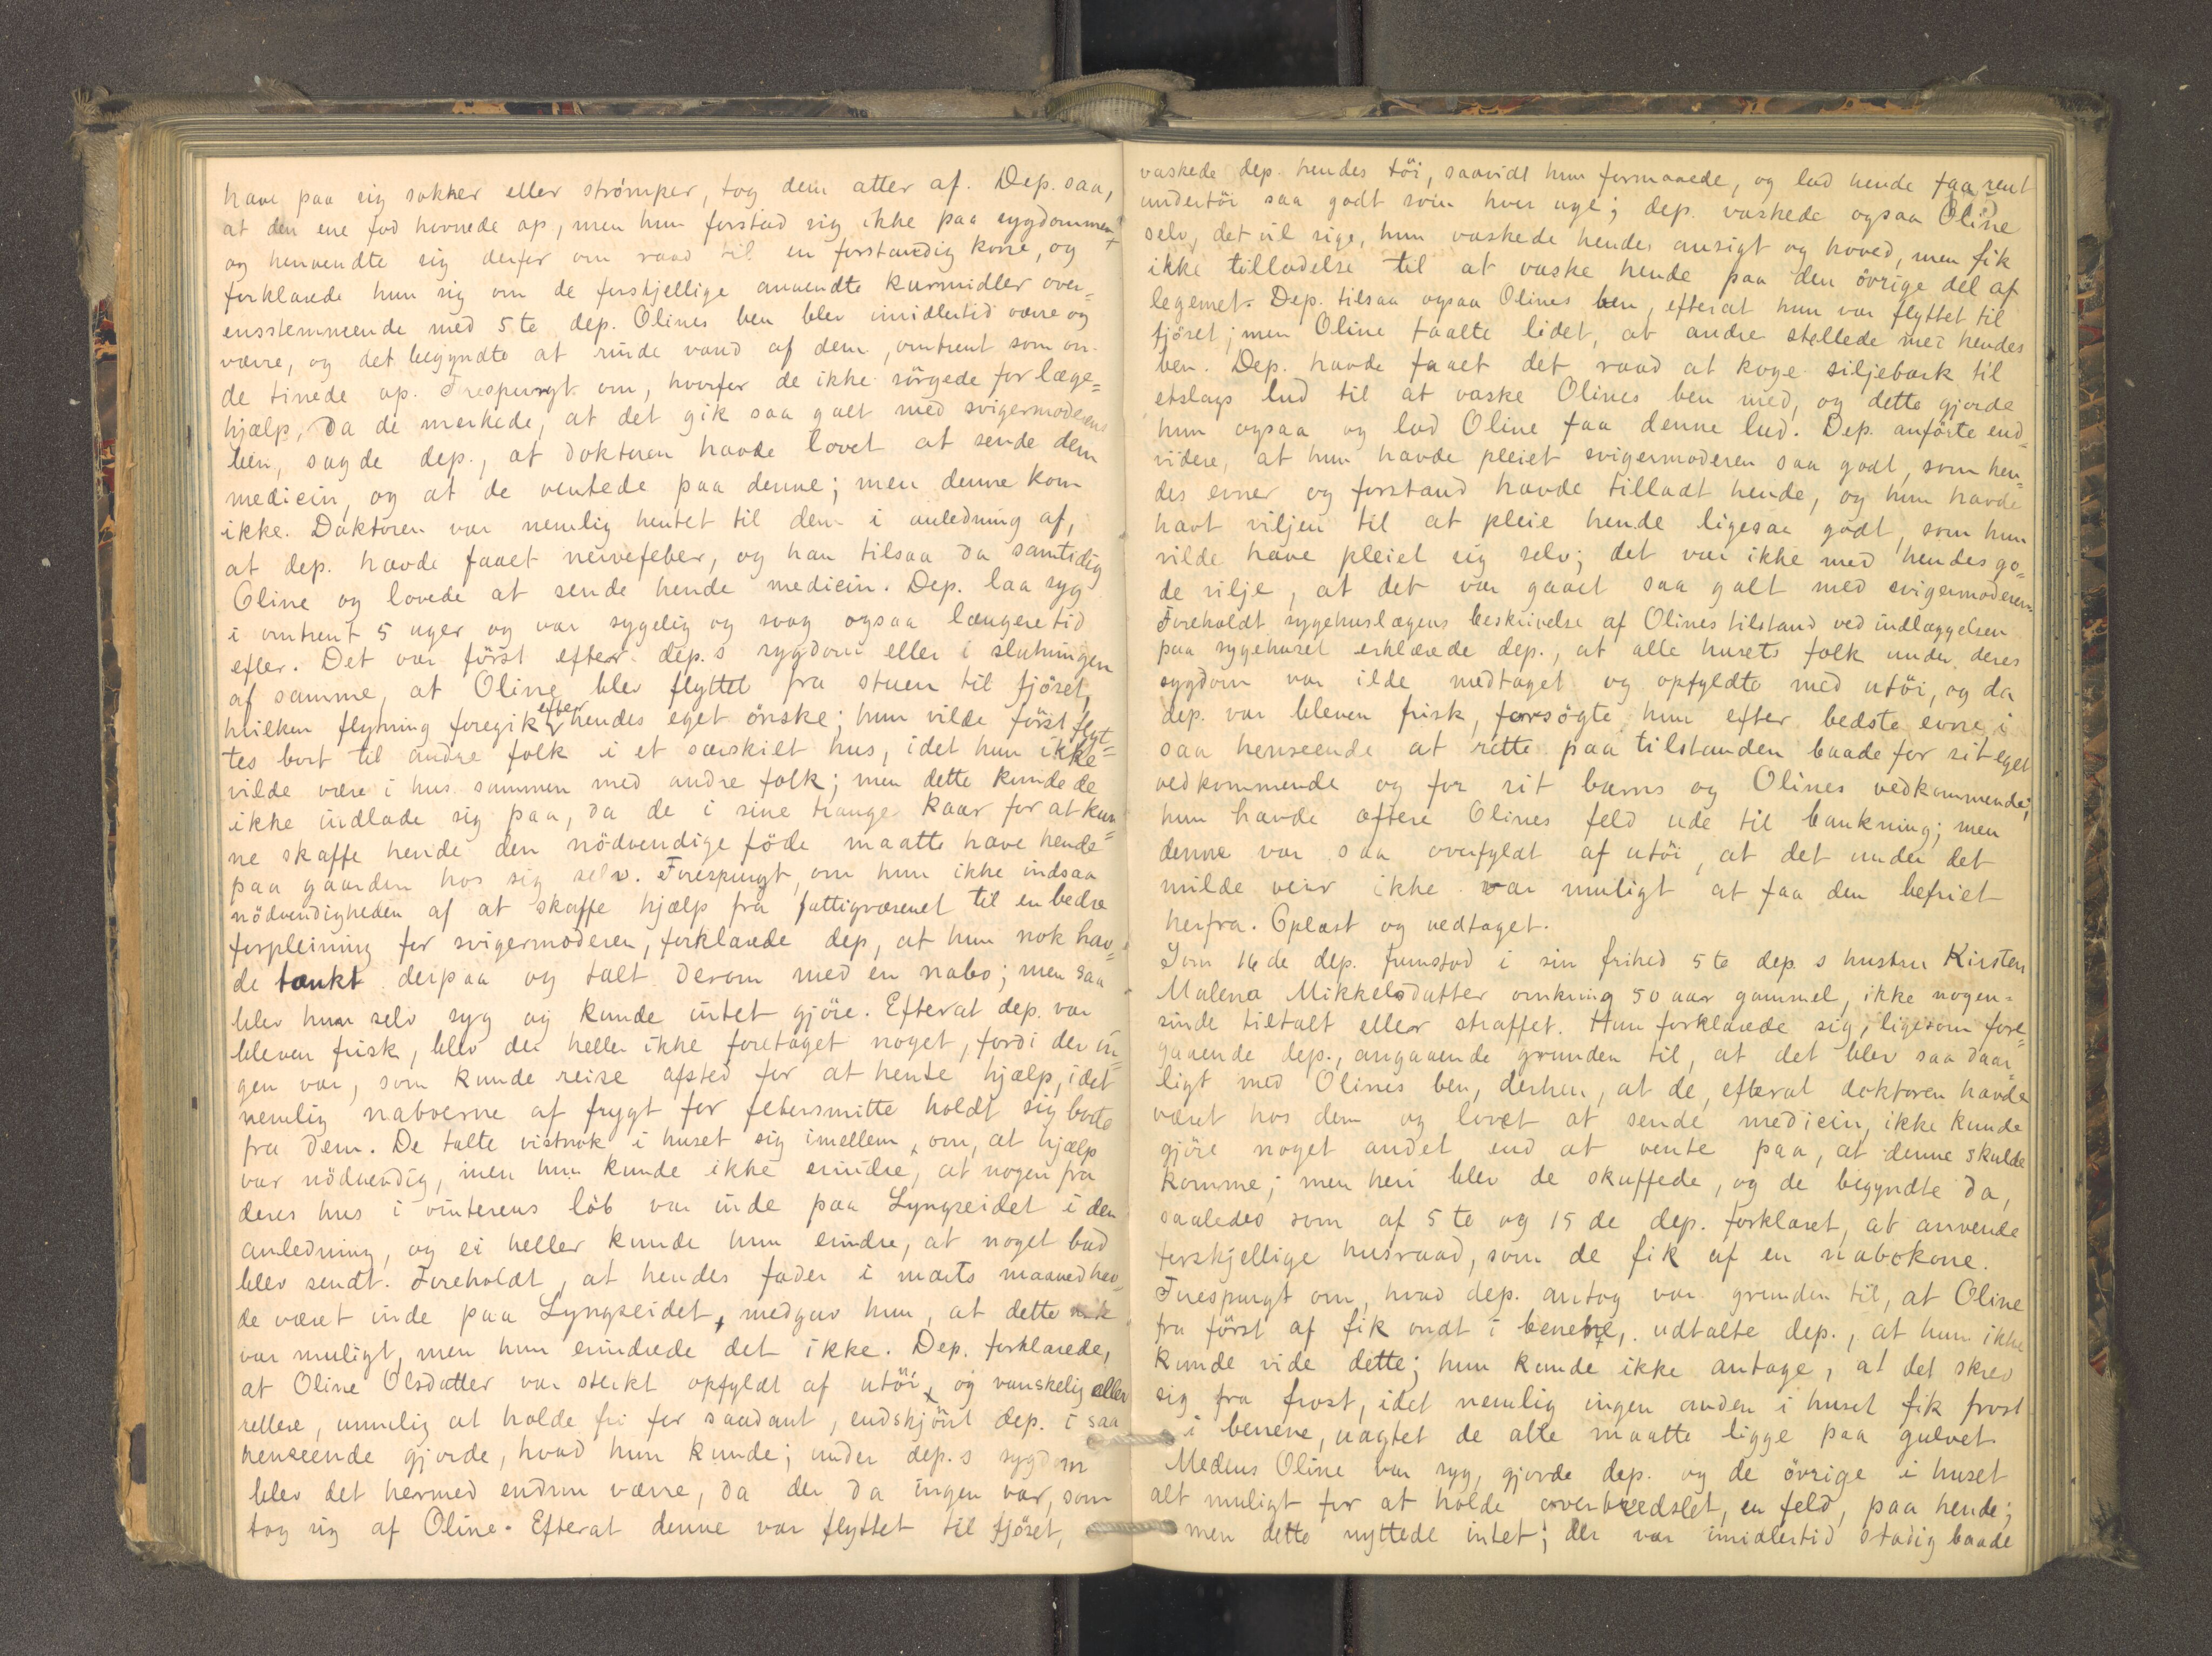 have paa sig sokker eller strömper, tog dem atter af. Dep. saa,
at den ene fod hovnede op, men hun forstod sig ikke paa sygdommen
og henvendte sig derfor om raad til en forstandig kone, og
forklarede hun sig om de forskjellige anvendte kurmidler over=
ensstemmende med 5te dep. Olines ben blev imidlertid værre og
værre, og det begyndte at rinde vand af dem, omtrent som om
de tinede op. Forespurgt om, hvorfor de ikke sörgede for læge=
hjælp, da de merkede, at det gik saa galt med svigermoderens
ben, sagde dep., at doktoren havde lovet at sende dem
medicin, og at de ventede paa denne; men denne kom
ikke. Doktoren var nemlig hentet til dem i anledning af,
at dep. havde faaet nervefeber, og han tilsaa da samtidig
Oline og lovede at sende hende medicin. Dep. laa syg
i omtrent 5 uger og var sygelig og svag ogsaa længere tid
efter. Det var först efter dep.s sygdom eller i slutningen
af samme, at Oline blev flyttet fra stuen til fjöset,
hvilken flytning foregik efter hendes eget önske; hun vilde först flyt=
tes bort til andre folk i et særskilt hus, idet hun ikke
vilde være i hus sammen med andre folk; men dette kunde de
ikke indlade sig paa, da de i sine trange kaar for at kun=
ne skaffe hende den nödvendige föde maatte have hende
paa gaarden hos sig selv. Forespurgt, om hun ikke indsaa
nödvendigheden af at skaffe hjælp fra fattigvæsenet til en bedre
forpleining for svigermoderen, forklarede dep, at hun nok hav=
de tænkt derpaa og talt derom med en nabo; men saa
blev hun selv syg og kunde intet gjöre. Efterat dep. var
bleven frisk, blev der heller ikke foretaget noget, fordi der in=
gen var, som kunde reise afsted for at hente hjælp, idet
nemlig naboerne af frygt for febersmitte holdt sig borte
fra dem. De talte vistnok i huset sig imellem, om, at hjælp
var nödvendig, men hun kunde ikke erindre, at nogen fra
deres hus i vinterens löb var inde paa Lyngseidet i den
anledning, og ei heller kunde hun erindre, at noget bud
blev sendt. Foreholdt, at hendes fader i marts maaned hav=
de været inde paa Lyngseidet, medgav hun, at dette nok
var muligt, men hun erindrede det ikke. Dep. forklarede,
at Oline Olsdatter var sterkt opfyldt af utöi, og vanskelig eller
rettere, umulig at holde fri for saadant, endskjönt dep. i saa
henseende gjorde, hvad hun kunde; under dep.s sygdom
blev det hermed endnu værre, da der da ingen var, som
tog sig af Oline. Efterat denne var flyttet til fjöset,
vaskede dep. hendes töi, saavidt hun formaaede, og lod hende faa rent
undertöi saa godt som hver uge; dep. vaskede ogsaa Oline
selv, det vil sige, hun vaskede hendes ansigt og hoved, men fik
ikke tilladelse til at vaske hende paa den övrige del af
legemet. Dep. tilsaa ogsaa Olines ben, efterat hun var flyttet til
fjöset; men Oline taalte lidet, at andre stellede med hendes
ben. Dep. havde faaet det raad at koge siljebark til
etslags lud til at vaske Olines ben med, og dette gjorde
hun ogsaa og lod Oline faa denne lud. Dep. anförte end=
videre, at hun havde pleiet svigermoderen saa godt, som hen=
des evner og forstand havde tilladt hende, og hun havde
havt viljen til at pleie hende ligesaa godt, som hun
vilde have pleiet sig selv; det var ikke med hendes go=
de vilje, at det var gaaet saa galt med svigermoderen.
Foreholdt sygehuslægens beskrivelse af Olines tilstand ved indlæggelsen
paa sygehuset erklærede dep., at alle husets folk under deres
sygdom var ilde medtaget og opfyldte med utöi, og da
dep. var bleven frisk, forsögte hun efter bedste evne i
saa henseende at rette paa tilstanden baade for sit eget
vedkommende og for sit barns og Olines vedkommende;
hun havde oftere Olines feld ude til bankning; men
denne var saa overfyldt af utöi, at det under det
milde veir ikke var muligt at faa den befriet
herfra. Oplæst og vedtaget.
Som 16de dep. fremstod i sin frihed 5te dep.s hustru Kirsten
Malena Mikkelsdatter omkring 50 aar gammel, ikke nogen=
sinde tiltalt eller straffet. Hun forklarede sig, ligesom fore=
gaaende dep., angaaende grunden til, at det blev saa daar=
ligt med Olines ben, derhen, at de, efterat doktoren havde
været hos dem og lovet at sende medicin, ikke kunde
gjöre noget andet end at vente paa, at denne skulde
komme; men heri blev de skuffede, og de begyndte da,
saaledes som af 5te og 15de dep. forklaret, at anvende
forskjellige husraad, som de fik af en nabokone.
Forespurgt om, hvad dep. antog var grunden til, at Oline
fra först af fik ondt i benene, udtalte dep., at hun ikke
kunde vide dette; hun kunde ikke antage, at det skrev
sig fra frost, idet nemlig ingen anden i huset fik frost
i benene, uagtet de alle maatte ligge paa gulvet.
Medens Oline var syg, gjorde dep. og de övrige i huset
alt muligt for at holde overbredslet, en feld, paa hende;
men dette nyttede intet; der var imidlertid stadig baade